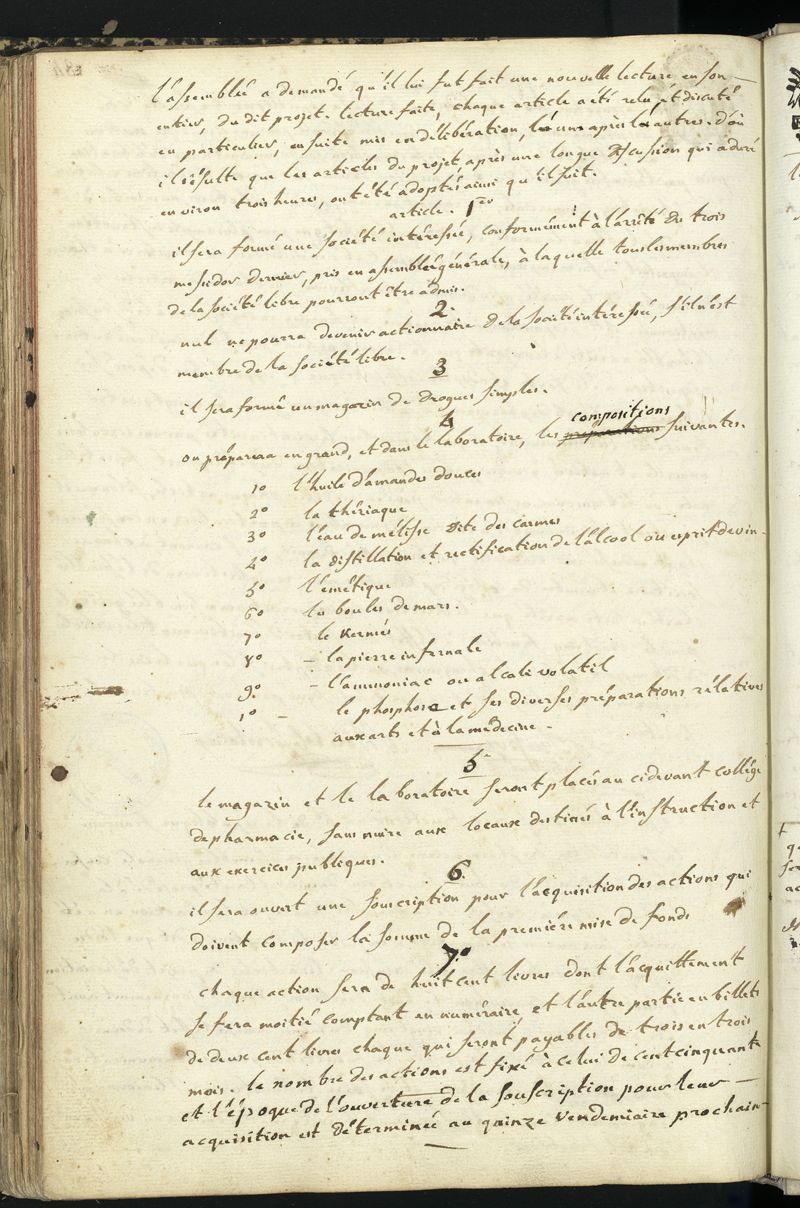 l'assemblée a demandé qu'il lui fut fait une nouvelle lecture en son
entier, du dit projet. lecture faite, chaque article a été relu et discuté
en particulier, ensuite mis en délibération, les uns après les autres. d'où
il résulte que les articles du projet après une longue discussion qui a duré
environ trois heures, ont été adoptés ainsi qu'il suit.
article. 1er
il sera formé une société intéressée, conformément à l'arrêté du trois
messidor dernier, pris en assemblée générale, à laquelle tous les membres
de la société libre pourront être admis.
2.
nul ne pourra devenir actionnaire de la société intéressée, s'il n'est
membre de la société libre.
3
il sera formé un magazin de drogues simples.
4
compositions
on préparera en grand, et dans le laboratoire, les préparations suivantes.
1º l'huile d'amandes douces
2º la thériaque
3º l'eau de mélisse dite des carmes
4º la distillation et rectification de l'alcool ou esprit de vin.
5º l'emétique
6º les boules de mars.
7º le Kermès
8º – la pierre infernale
9º. – l'ammoniac ou alcali volatil
1º – le phosphore et ses diverses préparations rélatives
aux arts et à la médecine.
5
le magazin et le laboratoire seront placés au cidevant collége
de pharmacie, sans nuire aux locaux destinés à l'instruction et
aux exercices publiques.
6.
il sera ouvert une souscription pour l'acquisition des actions qui
doivent composer la somme de la première mise de fonds
7º
chaque action sera de huit cent livres dont l'acquittement
se fera moitié comptant en numéraire et l'autre partie en billets
de deux cent livres chaque qui seront payables de trois en trois
mois. le nombre des actions est fixé à celui de cent cinquante
et l'époque de l'ouverture de la souscription pour leur
acquisition est déterminée au quinze vendemiaire prochain